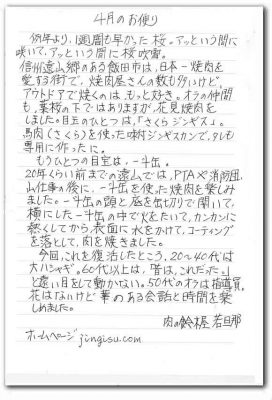 4月のお便り
例年より、1週間も早かった桜。アッという間に
咲いて、アッという間に桜吹雪。
信州遠山郷のある飯田市は、日本一焼肉を
愛する街で、焼肉屋さんの数も多いけど、
アウトドアで焼くのは、もっと好き。オラの仲間
も、葉桜の下ではありますが、花見焼肉を
しました。目玉のひとつは、「さくらジンギス」。
馬肉(さくら)を使った味付ジンギスカンで、タレも
専用に作ったに。
もうひとつの目玉は、一斗缶。
20年くらい前までの遠山では、PTAや消防団、
山仕事の後に、一斗缶を使った焼肉を楽しみ
ました。一斗缶の頭と底を出切りで開いて、
横にした一斗缶の中で火をたいて、カンカンに
熱くしてから、表面に水をかけて、コーティング
を落として、肉を焼きました。
今回、これを復活したところ、20〜40代は
大ハシャギ。60代以上は、「昔は、これだった。」
と遠い目をして動かない。50代のオラは指導員。
花はないけど華のある会話と時間を楽
しめました。
肉の鈴木屋 若旦那
ホームページ jingisu.com